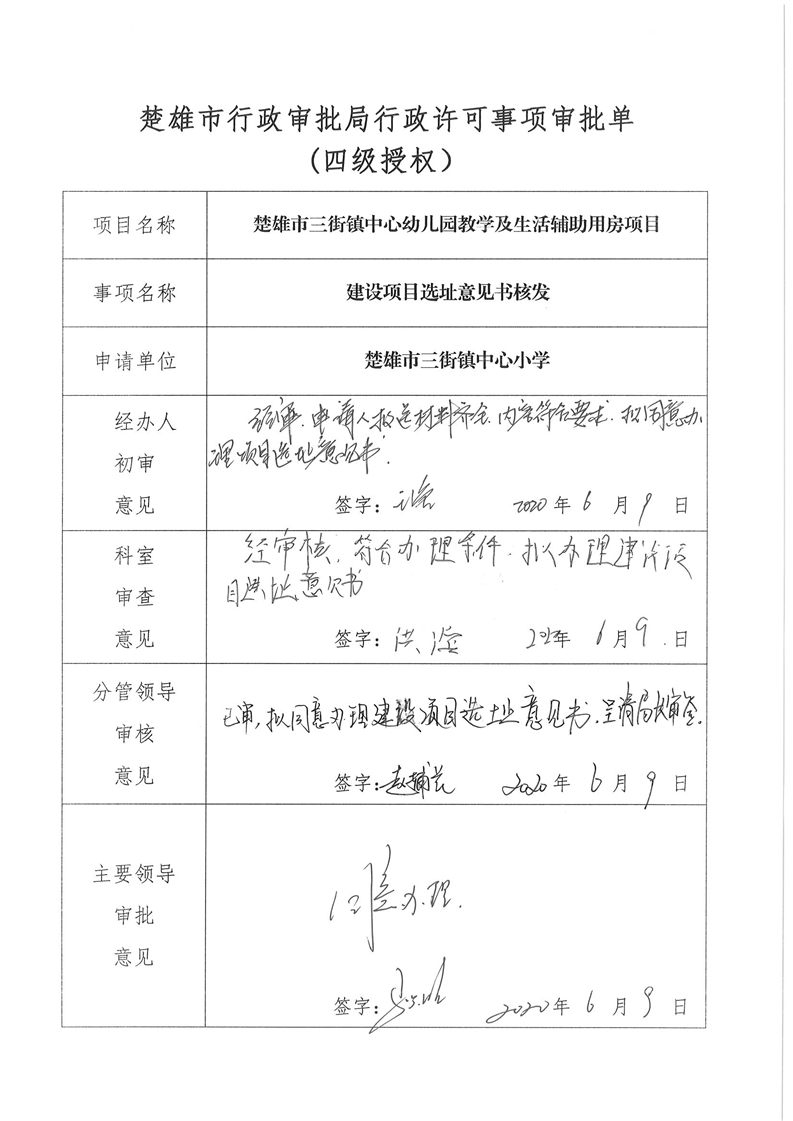 楚雄市行政审批局行政许可事项审批单
(四级授权)
项目名称
楚雄市三街镇中心幼儿园教学及生活辅助用房项目
事项名称
建设项目选址意见书核发
申请单位
楚雄市三街镇中心小学
经办人
初审
意见
经审,申请人报送材料齐全,内容符合要求,拟同意办
理项目选址意见书.
签字: 2020年6月9日
科室
审查
意见
经审核,符合办理条件,拟办理建设项
目选址意见书
签字: 洪 2020年6月9日
分管领导
审核
意见
已审,拟同意办理建设项目选址意见书,呈请局长审签.
签字: 2020年6月9日
主要领导
审批
意见
同意办理.
签字: 2020年6月9日